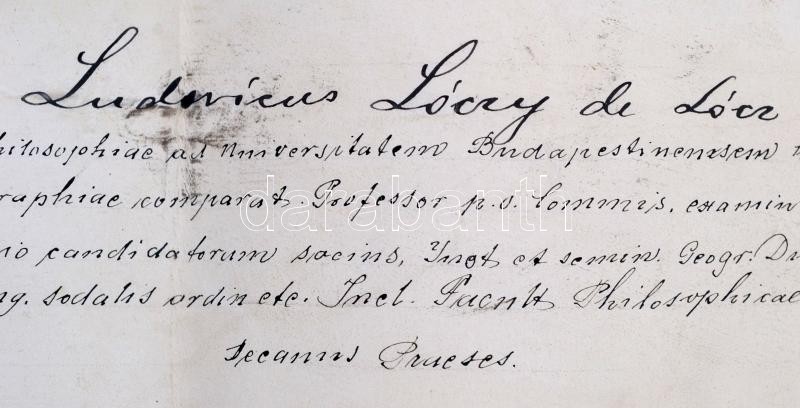 Ludovicus Lóczy de Lócz
hilosophiae ad Universitatem Budapestinensem
raphiae comparat. Professor p. o. Commis. examin
io candidatorum socius, Inst et semin. Geogr. Di
ng. sodalis ordin etc. Incl. Facult Philosophicae
Decanus Praeses.
darabanth